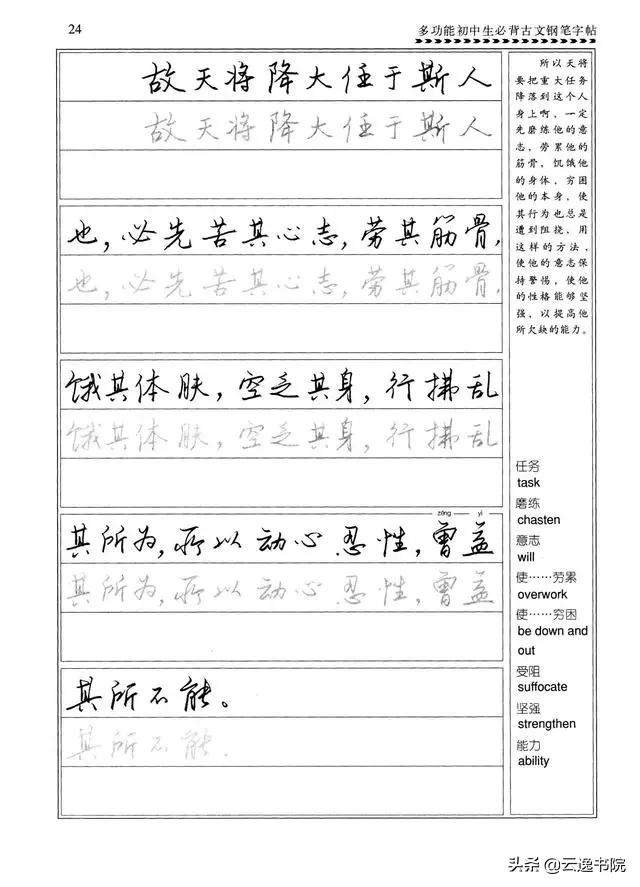 24
多功能初中生必背古文钢笔字帖
故天将降大任于斯人
故天将降大任于斯人
也，必先苦其心志，劳其筋骨，
也，必先苦其心志，劳其筋骨，
饿其体肤，空乏其身，行拂乱
饿其体肤，空乏其身，行拂乱
zēng yì
其所为，所以动心忍性，曾益
其所为，所以动心忍性，曾益
其所不能。
其所不能。
所以天将
要把重大任务
降落到这个人
身上啊，一定
先磨练他的意
志，劳累他的
筋骨，饥饿他
的身体，穷困
他的本身，使
其行为也总是
遭到阻挠，用
这样的方法，
使他的意志保
持警惕，使他
的性格能够坚
强，以提高他
所欠缺的能力。
任务
task
磨练
chasten
意志
will
使……劳累
overwork
使……穷困
be down and
out
受阻
suffocate
坚强
strengthen
能力
ability
头条 @云逸书院